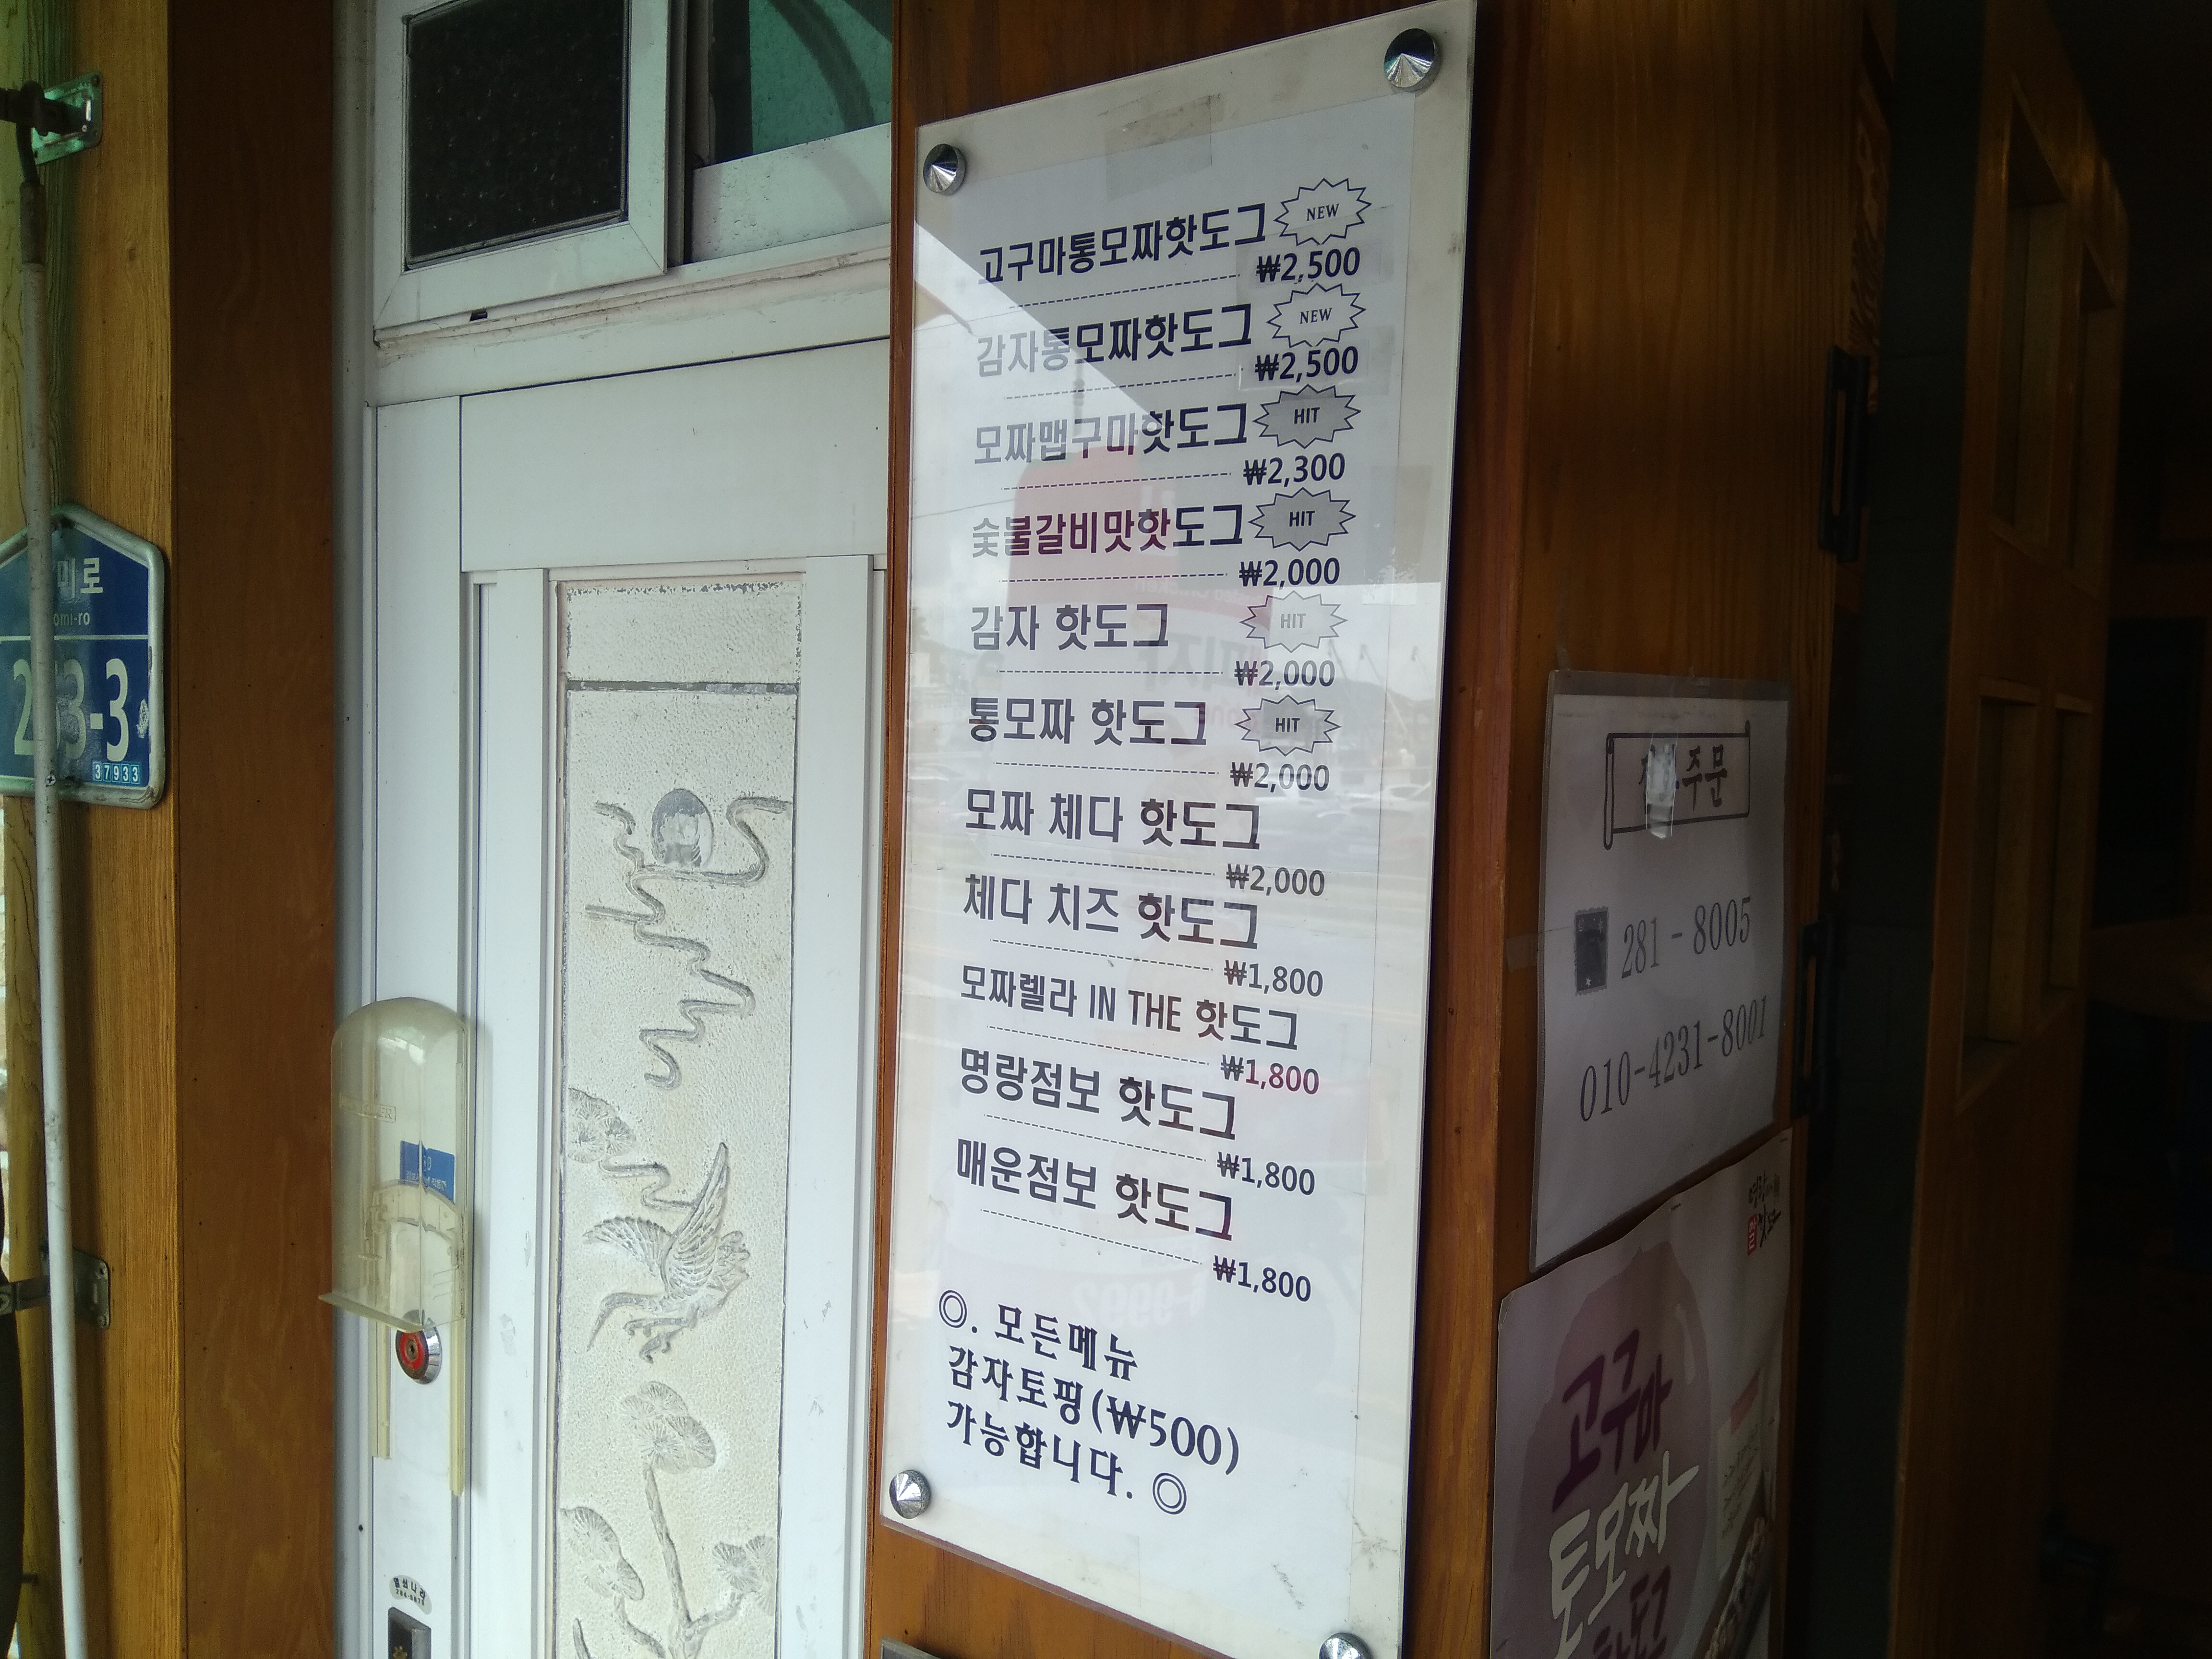 고구마통모짜핫도그 NEW
₩2,500
감자통모짜핫도그 NEW
₩2,500
모짜맵구마핫도그 HIT
₩2,300
숯불갈비맛핫도그 HIT
₩2,000
감자 핫도그 HIT
₩2,000
통모짜 핫도그 HIT
₩2,000
모짜 체다 핫도그
₩2,000
체다 치즈 핫도그
₩1,800
모짜렐라 IN THE 핫도그
₩1,800
명랑점보 핫도그
₩1,800
매운점보 핫도그
₩1,800
◎. 모든메뉴
감자토핑(₩500)
가능합니다. ◎
미로
omi-ro
37933
주문
281-8005
010-4231-8001
고구마
통모짜
핫도그